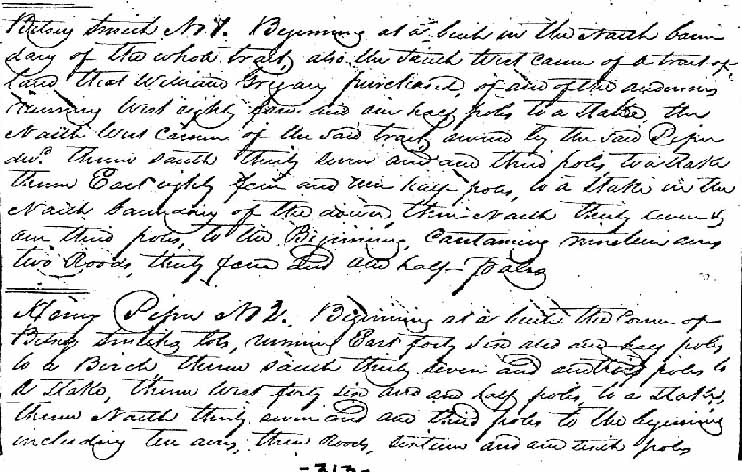 Betsey Smith No 1. Beginning at a birch in the North boun
dary of the whole tract, also the South West corner of a tract of
Land that William Gregory purchased, of one of the
running West eighty four and one half poles to a stake, the
North West corner of the said tract, owned by the said Peper
decd. thence South thirty seven and one third poles, to a stake
thence East eighty four and one half poles, to a stake in the
North boundary of the dower, thence North thirty seven &
one third poles, to the Beginning, Containing nineteen acres
two Roods, thirty four and one half - Poles
Henry Peper No 2. Beginning at a birch the corner of
Betsey Smiths lots, running East forty six and one half poles
to a Birch thence South thirty seven and one third poles to
a stake, thence West forty six and one half poles, to a stake,
thence North thirty seven and one third poles to the beginning
including ten acres, three Roods, sixteen and one poles
-313-